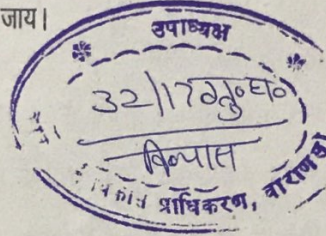 जाय।
उपाध्यक्ष
32/17
विन्यास
विकास प्राधिकरण, वाराणसी